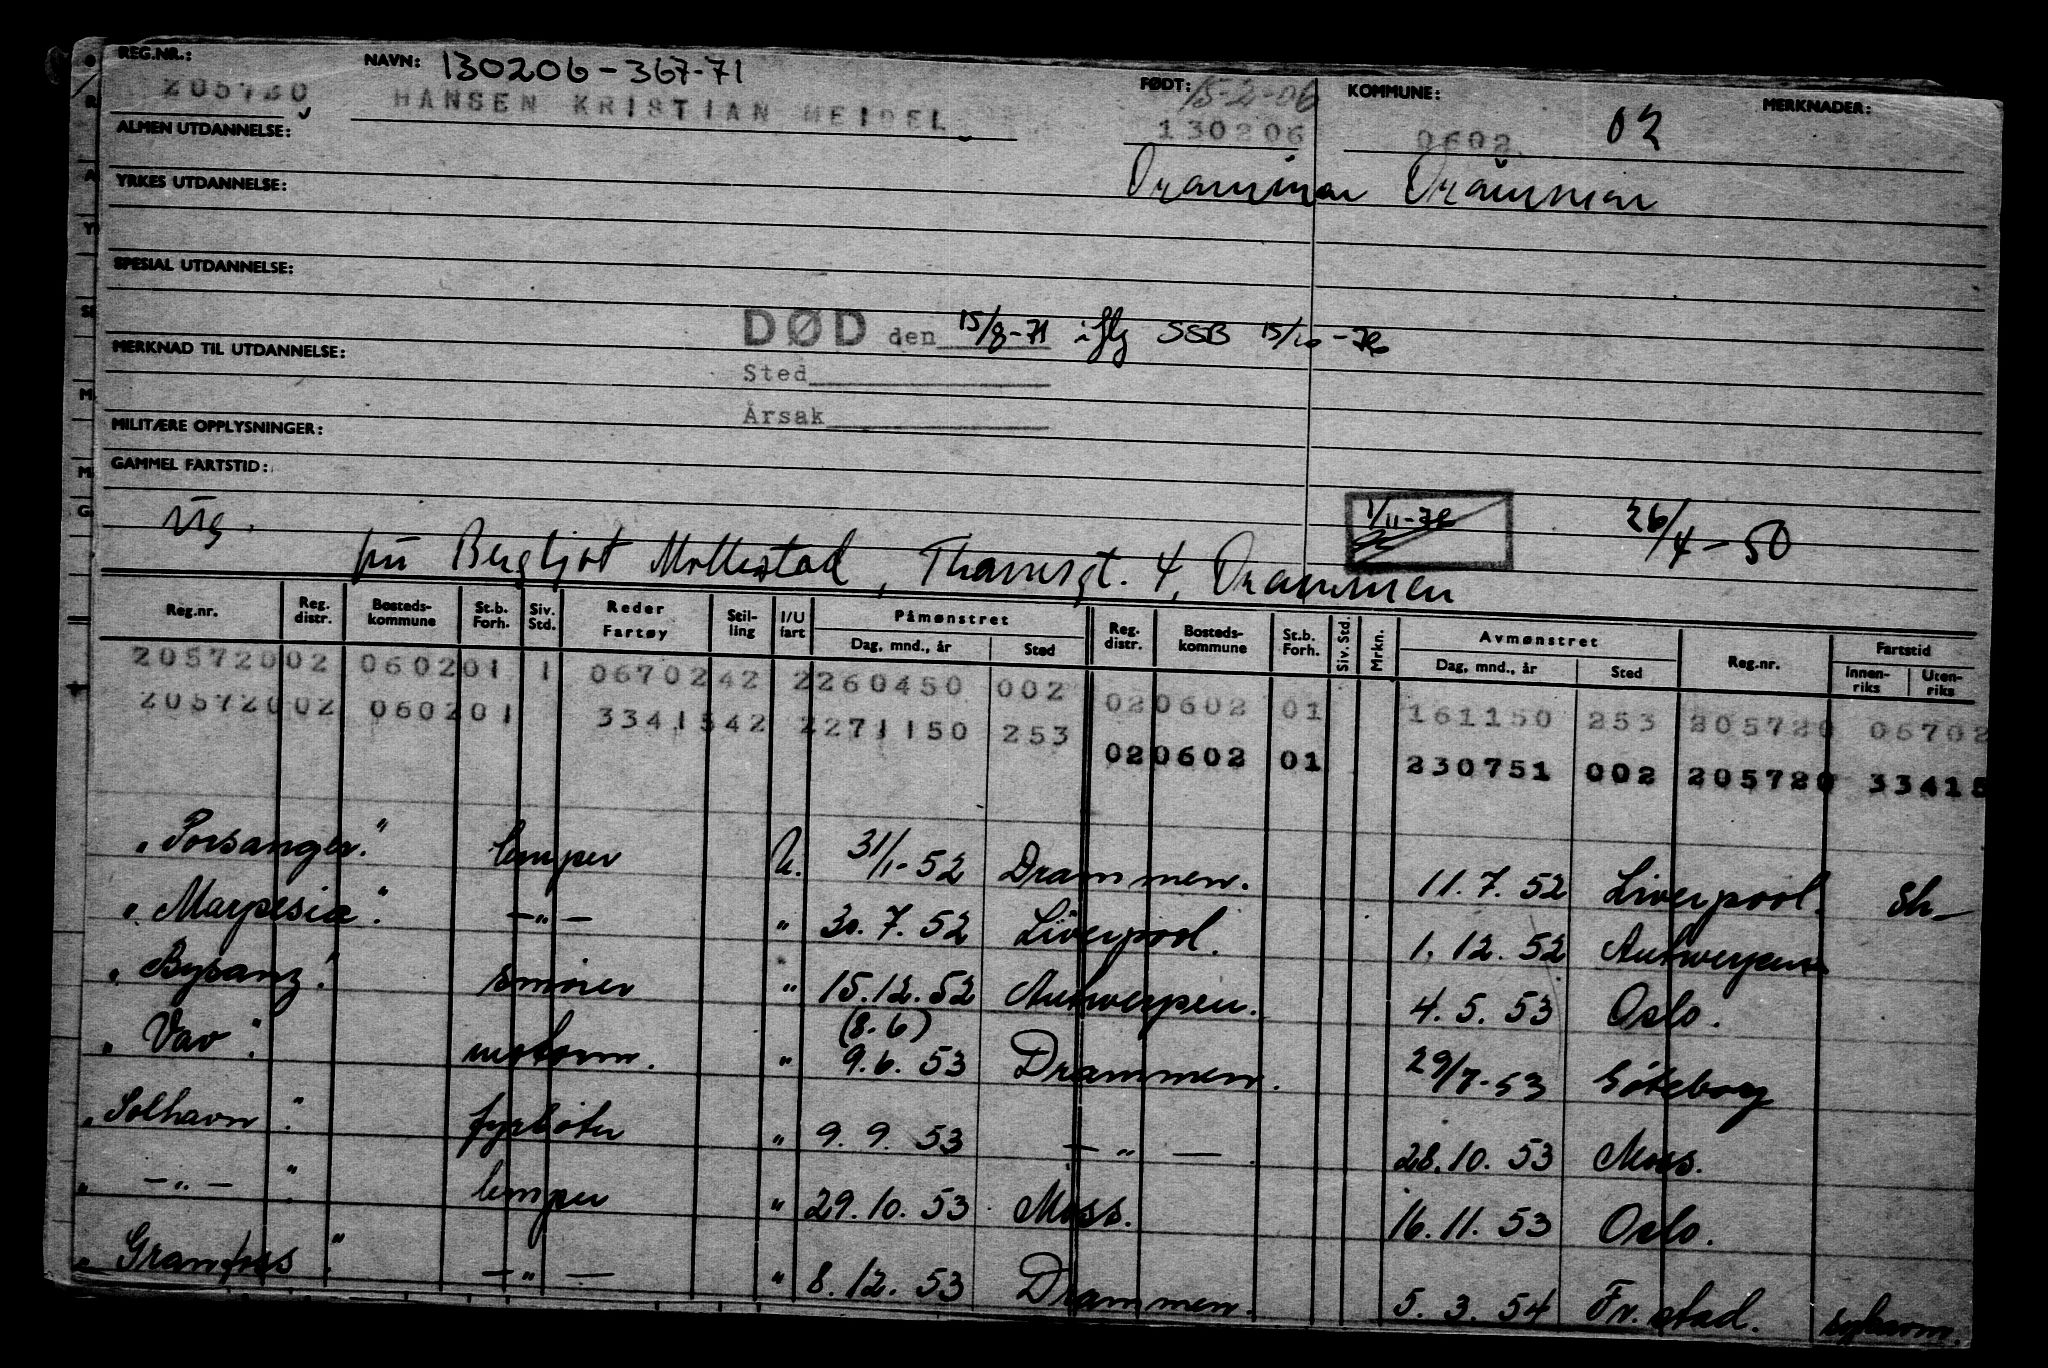 REG.NR.: NAVN: 130206-367-71 FØDT: 15-2-06 KOMMUNE: MERKNADER:
205720 HANSEN KRISTIAN MEIDEL 130206 0602 02
ALMEN UTDANNELSE: Drammen Drammen
YRKES UTDANNELSE:
SPESIAL UTDANNELSE:
DØD den 15/8-71 iflg SSB 15/10-76
MERKNAD TIL UTDANNELSE:
Sted
Årsak
MILITÆRE OPPLYSNINGER:
GAMMEL FARTSTID:
1/11-76 26/4-50
Bergljot Mollestad, Thamsgt. 4, Drammen
Reg.nr. Reg. distr. Bosteds-kommune St.b. Forh. Siv. Std. Reder Fartøy Stil-ling I/U fart Påmønstret Reg. distr. Bosteds-kommune St.b. Forh. Siv. Std. Mrkn. Avmønstret Reg.nr. Fartstid
Dag, mnd., år Sted Dag, mnd., år Sted Innen-riks Uten-riks
205720 02 0602 01 1 0670242 2 260450 002 02 0602 01 161150 253 205720 06702
205720 02 0602 01 3341542 2 271150 253 02 0602 01 230751 002 205720 33415
"Porsanger." lemper U. 31/1-52 Drammen. 11.7.52 Liverpool. Sh-
"Marpesia". -"- " 30.7.52 Liverpool. 1.12.52 Antwerpen
"Bysanz". smører " 15.12.52 Antwerpen. 4.5.53 Oslo.
(8.6)
"Vav". motorm. " 9.6.53 Drammen. 29/7-53 Göteborg
"Solhavn". fyrbøter " 9.9.53 -"-. 28.10.53 Moss.
"-"-". lemper " 29.10.53 Moss. 16.11.53 Oslo.
"Granfoss". -"- " 8.12.53 Drammen. 5.3.54 Fr.stad. sykavm.